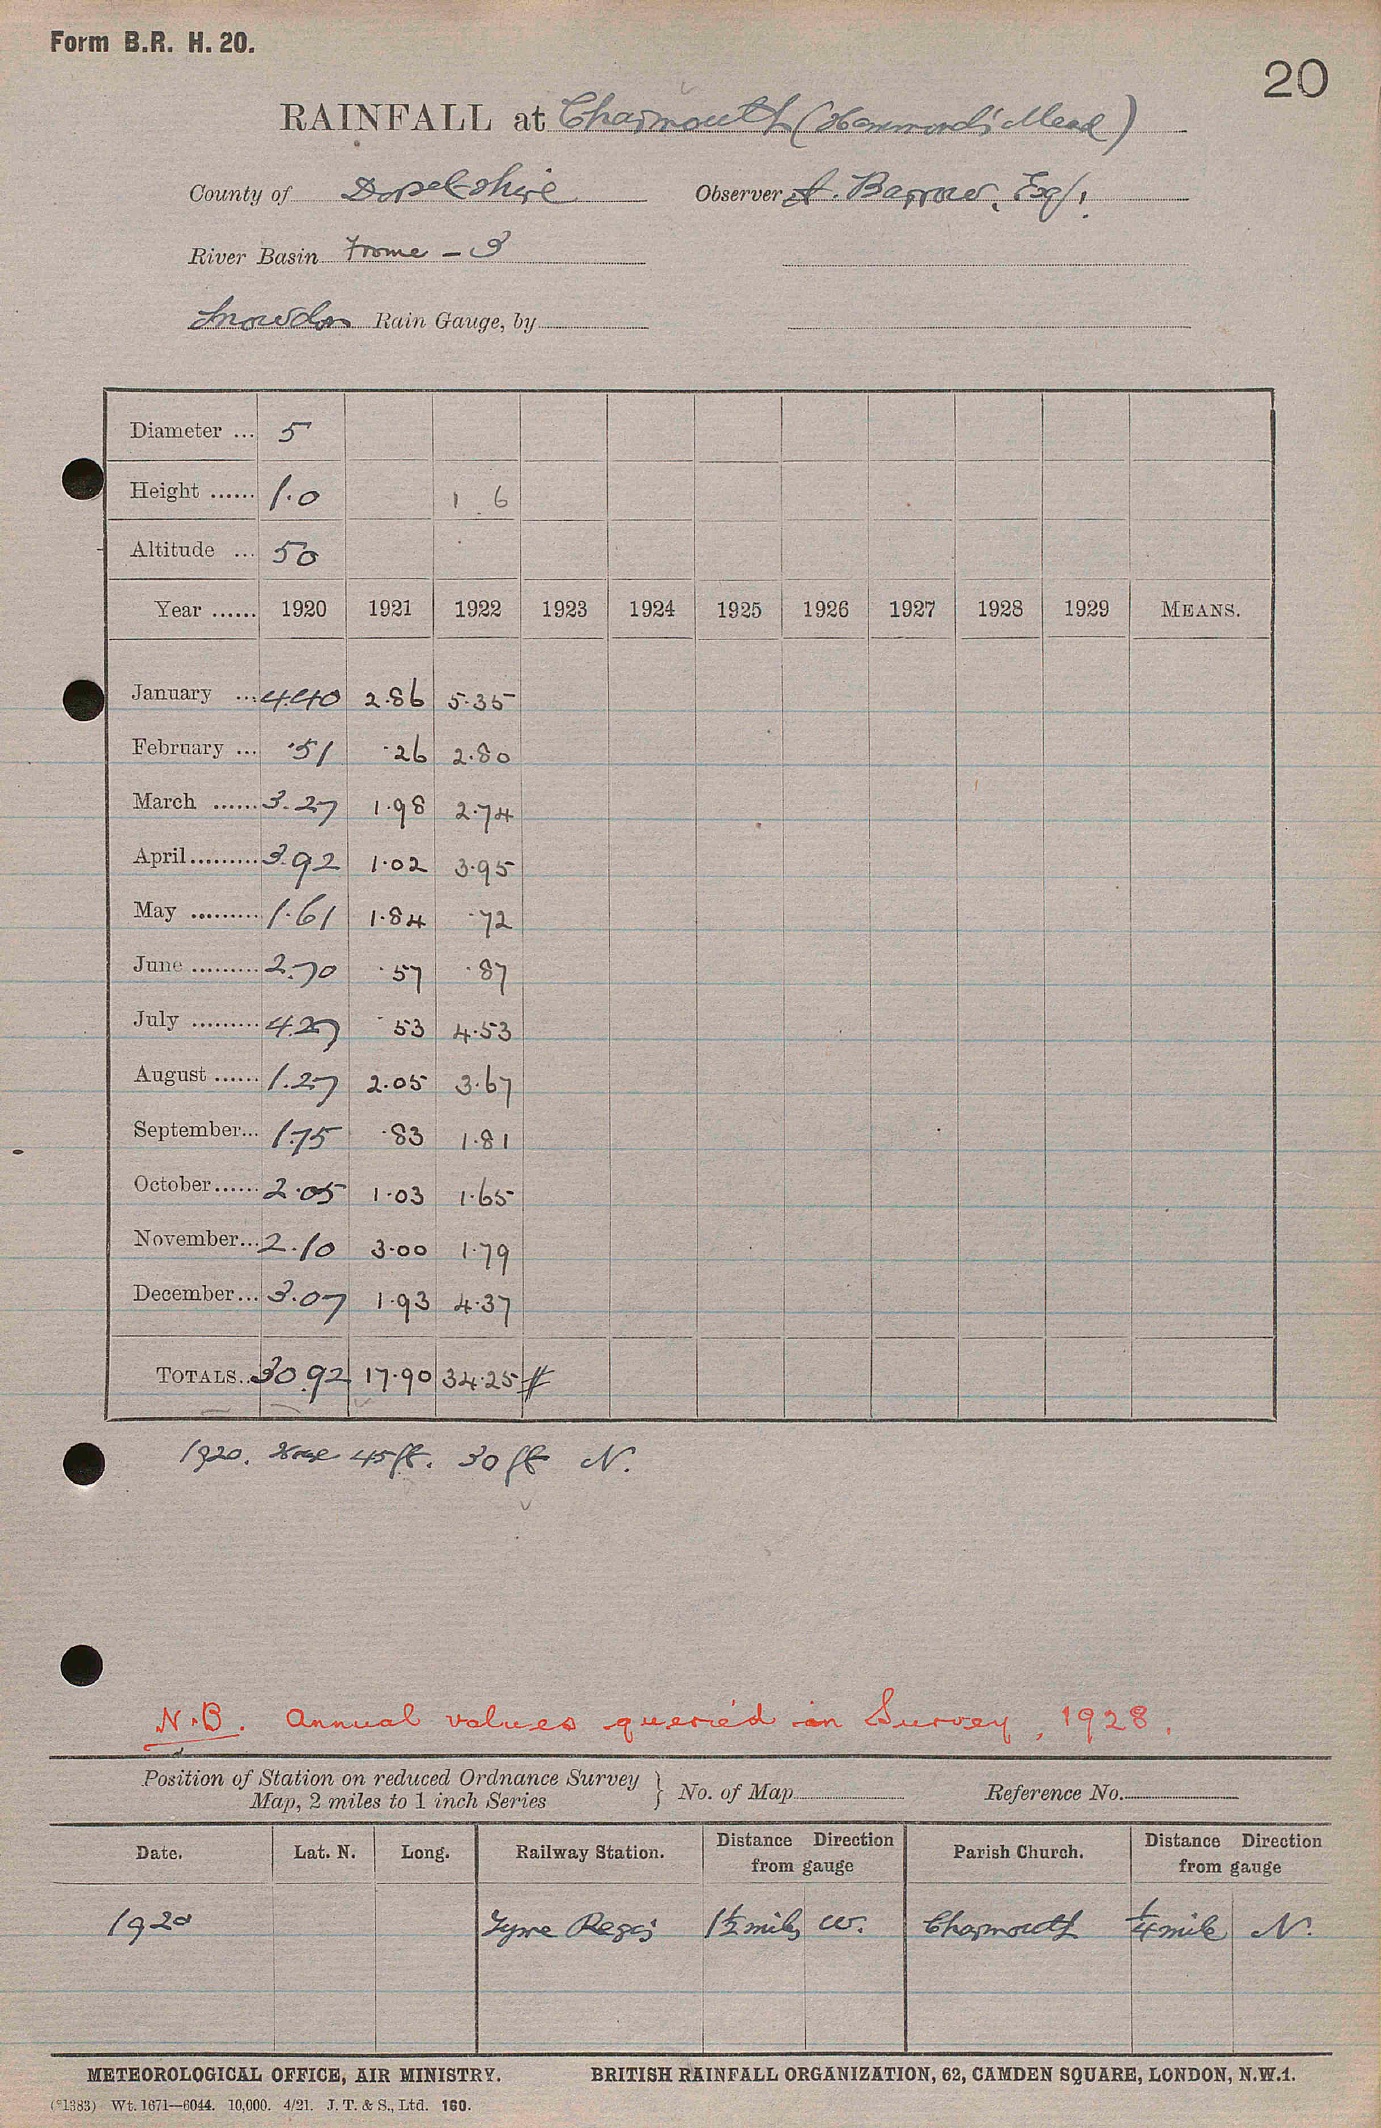 Form B.R. H. 20.
20
RAINFALL at Charmouth (Hammonds Mead)
County of Dorsetshire Observer A. Barrow, Esq.
River Basin Frome - 3
Snowdon Rain Gauge, by
Diameter ... 5
Height ...... 1.0 1 6
Altitude ... 50
Year ...... 1920 1921 1922 1923 1924 1925 1926 1927 1928 1929 MEANS.
January ... 4.40 2.86 5.35
February ... .51 .26 2.80
March ...... 3.27 1.98 2.74
April ......... 3.92 1.02 3.95
May ......... 1.61 1.84 .72
June ......... 2.70 .57 .87
July ......... 4.27 .53 4.53
August ...... 1.27 2.05 3.67
September... 1.75 .83 1.81
October...... 2.05 1.03 1.65
November... 2.10 3.00 1.79
December... 3.07 1.93 4.37
TOTALS.. 30.92 17.90 34.25 #
1920. 45 ft. 30 ft N.
N.B. Annual values queried in Survey, 1928.
Position of Station on reduced Ordnance Survey
Map, 2 miles to 1 inch Series } No. of Map Reference No.
Date. Lat. N. Long. Railway Station. Distance Direction from gauge Parish Church. Distance Direction from gauge
1920 Lyme Regis 1½ miles W. Charmouth ¼ mile N.
METEOROLOGICAL OFFICE, AIR MINISTRY. BRITISH RAINFALL ORGANIZATION, 62, CAMDEN SQUARE, LONDON, N.W.1.
(*1383) Wt. 1671—6044. 10,000. 4/21. J. T. & S., Ltd. 160.